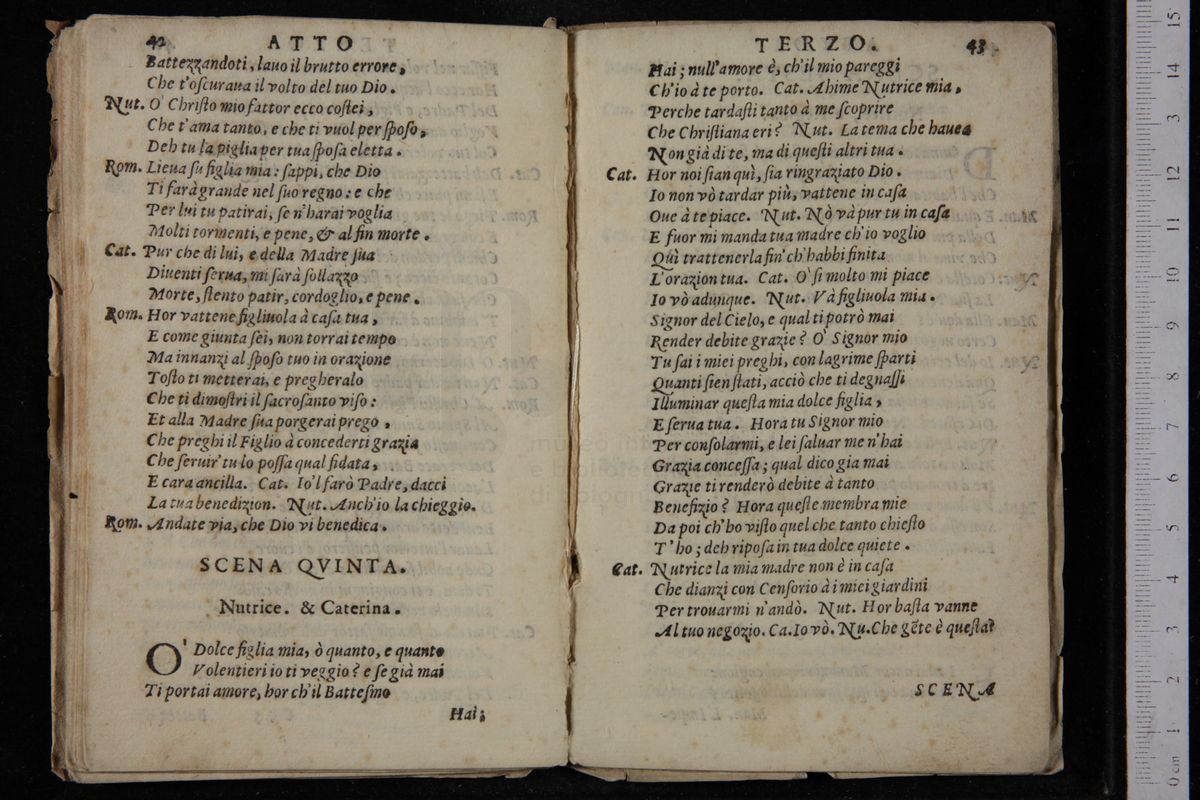 42 ATTO
Battezzandoti, lauo il brutto errore,
Che t'oſcuraua il volto del tuo Dio.
Nut. O Chriſto mio fattor ecco coſtei,
Che t'ama tanto, e che ti vuol per ſpoſo,
Deh tu la piglia per tua ſpoſa eletta.
Rom. Lieua ſu figlia mia: ſappi, che Dio
Ti farà grande nel ſuo regno: e che
Per lui tu patirai, ſe n'harai voglia
Molti tormenti, e pene, & al fin morte.
Cat. Pur che di lui, e della Madre ſua
Diuenti ſerua, mi ſarà ſollazzo
Morte, ſtento patir, cordoglio, e pene.
Rom. Hor vattene figliuola à caſa tua,
E come giunta ſei, non torrai tempo
Ma innanzi al ſpoſo tuo in orazione
Toſto ti metterai, e pregheralo
Che ti dimoſtri il ſacroſanto viſo:
Et alla Madre ſua porgerai prego,
Che preghi il Figlio à concederti grazia
Che ſeruir' tu lo poſſa qual fidata,
E cara ancilla. Cat. Io'l farò Padre, dacci
La tua benedizion. Nut. Anch'io la chieggio.
Rom. Andate via, che Dio vi benedica.
SCENA QVINTA.
Nutrice. & Caterina.
O' Dolce figlia mia, ò quanto, e quanto
Volentieri io ti veggio? e ſe già mai
Ti portai amore, hor ch'il Batteſmo
Hai;
TERZO. 43
Hai; null'amore è, ch'il mio pareggi
Ch'io à te porto. Cat. Ahime Nutrice mia,
Perche tardaſti tanto à me ſcoprire
Che Chriſtiana eri? Nut. La tema che hauea
Non già di te, ma di queſti altri tua.
Cat. Hor noi ſian quì, ſia ringraziato Dio.
Io non vò tardar più, vattene in caſa
Oue à te piace. Nut. Nò và pur tu in caſa
E fuor mi manda tua madre ch'io voglio
Quì trattenerla fin' ch'habbi finita
L'orazion tua. Cat. O' ſi molto mi piace
Io vò adunque. Nut. Và figliuola mia.
Signor del Cielo, e qual ti potrò mai
Render debite grazie? O' Signor mio
Tu ſai i miei preghi, con lagrime ſparti
Quanti ſien ſtati, acciò che ti degnaſſi
Illuminar queſta mia dolce figlia,
E ſerua tua. Hora tu Signor mio
Per conſolarmi, e lei ſaluar me n'hai
Grazia conceſſa; qual dico gia mai
Grazie ti renderò debite à tanto
Benefizio? Hora queſte membra mie
Da poi ch'ho viſto quel che tanto chieſto
T'ho; deh ripoſa in tua dolce quiete.
Cat. Nutrice la mia madre non è in caſa
Che dianzi con Cenſorio à i miei giardini
Per trouarmi n'andò. Nut. Hor baſta vanne
Al tuo negozio. Ca. Io vò. Nu. Che gẽte è queſta?
SCENA